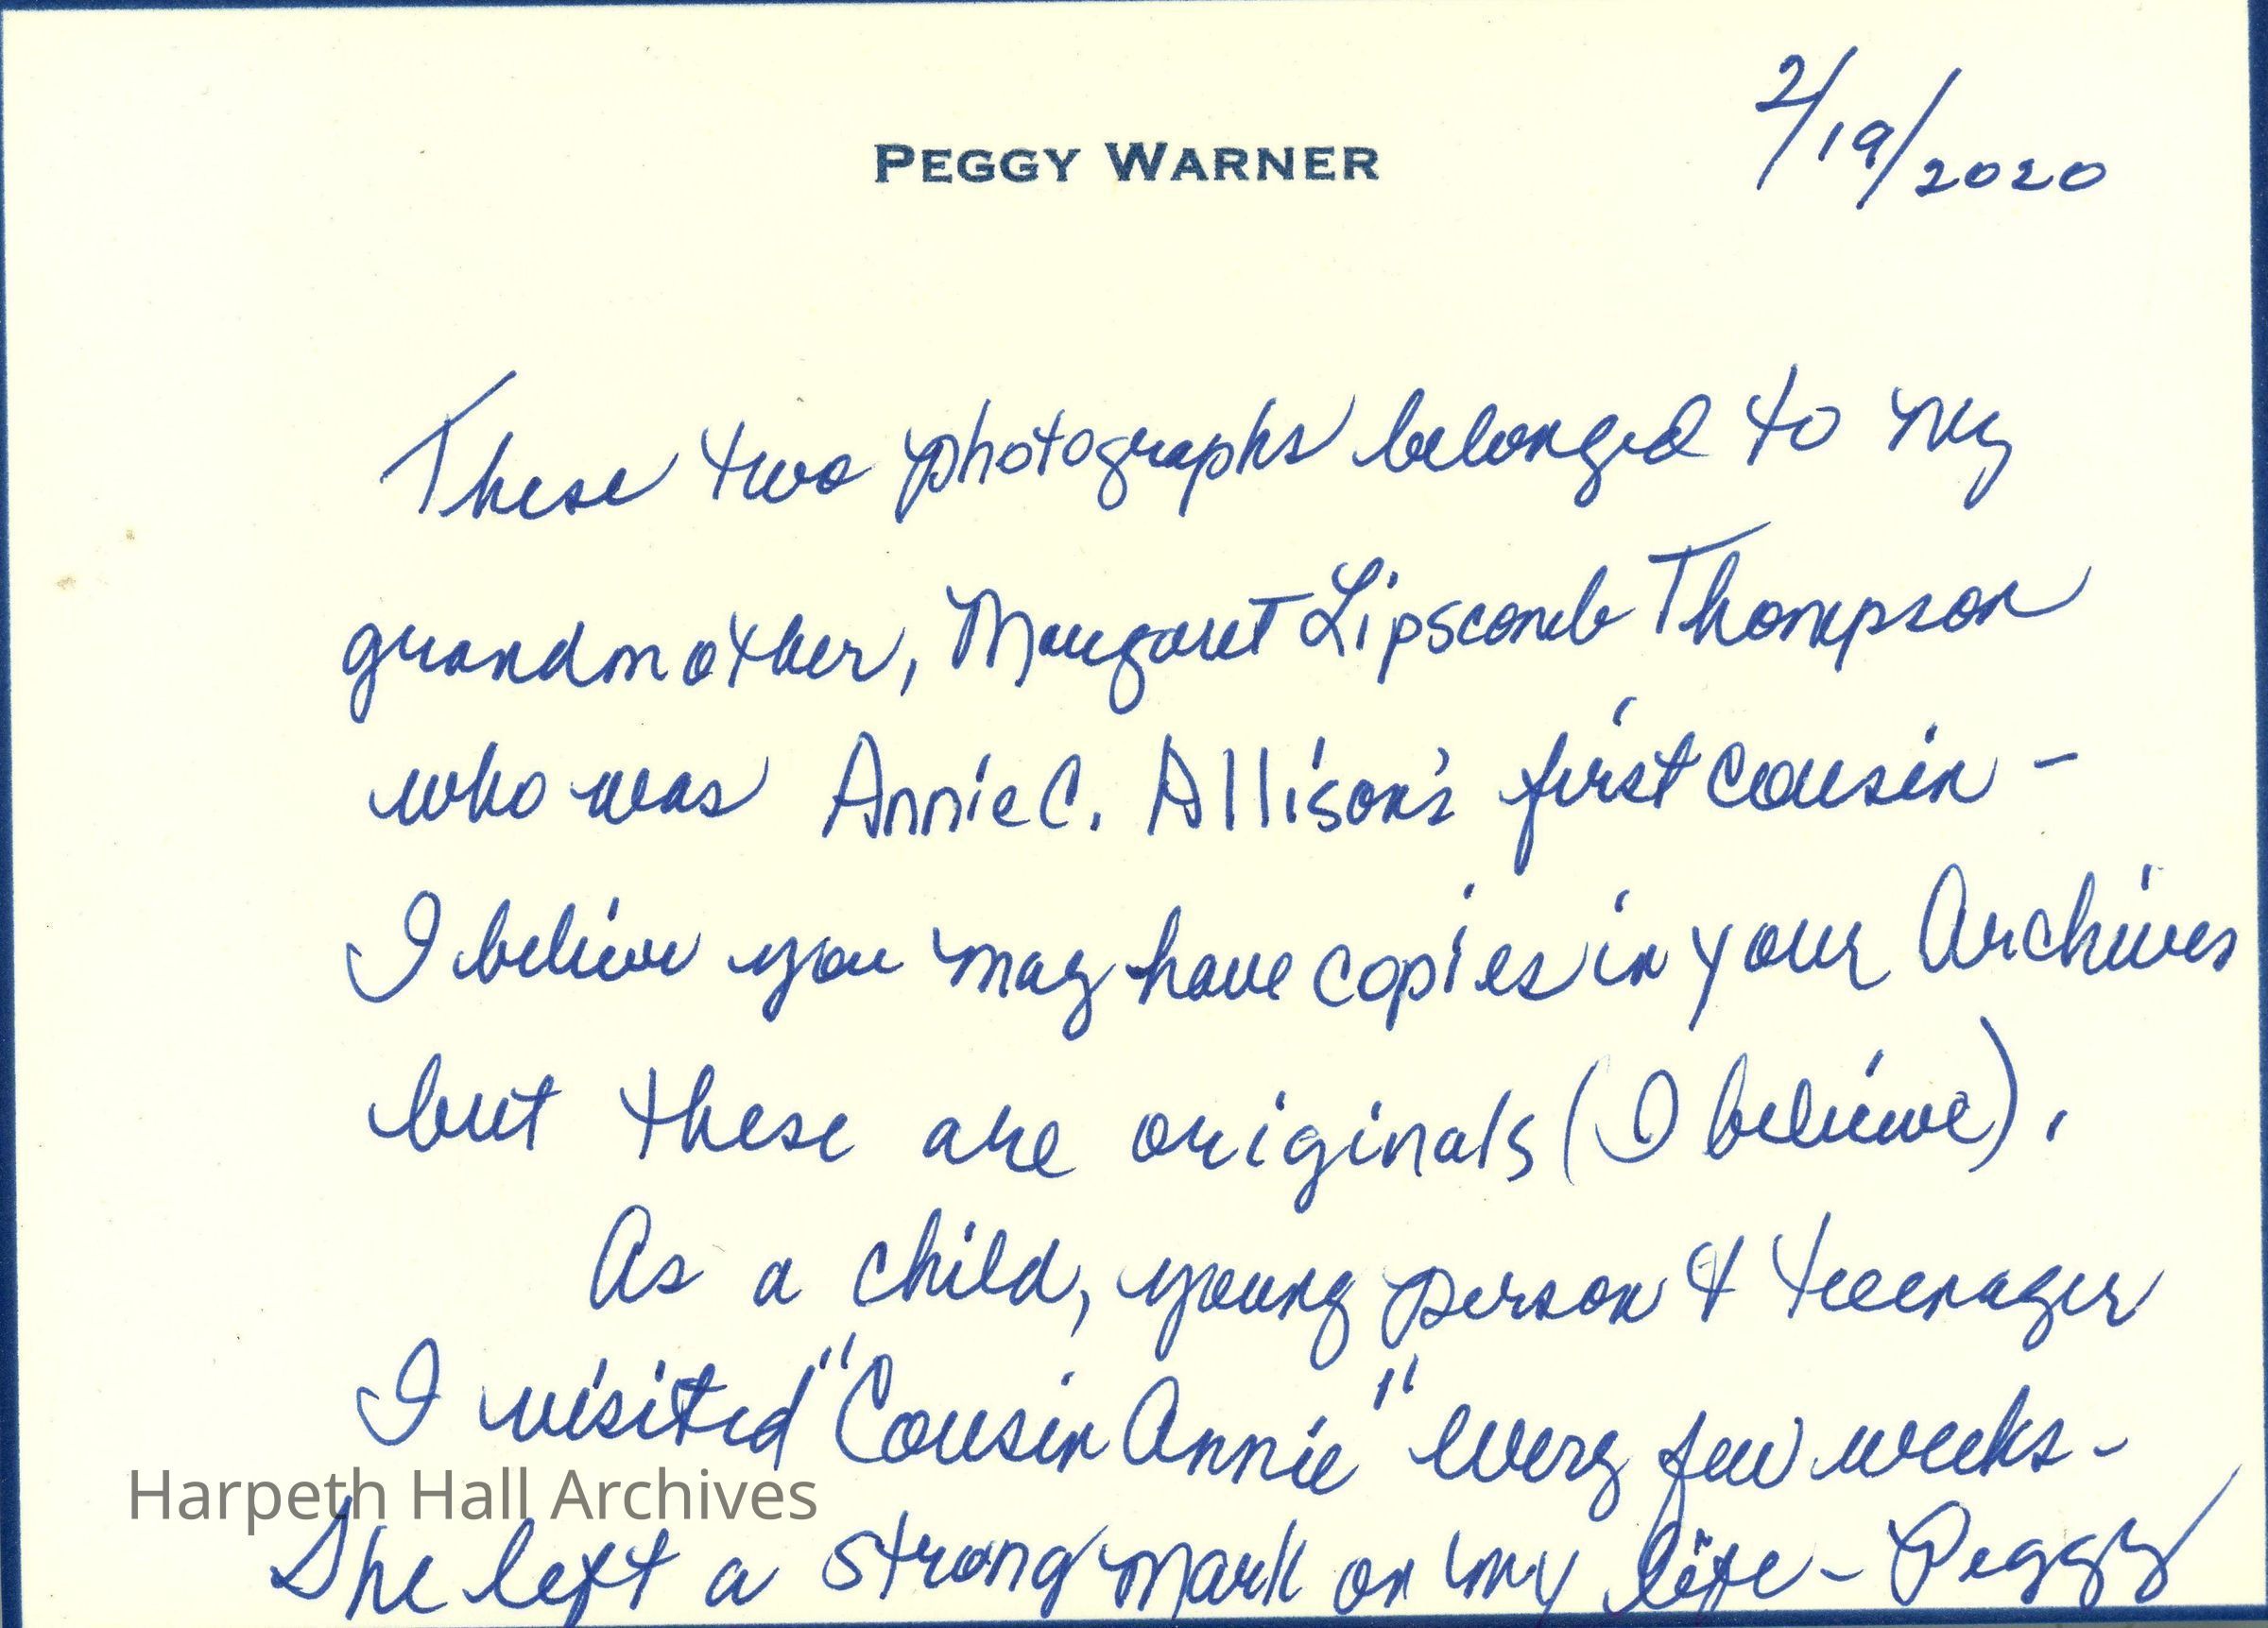 2/19/2020
PEGGY WARNER
These two photographs belonged to my
grandmother, Margaret Lipscomb Thompson
who was Annie C. Allison's first cousin -
I believe you may have copies in your Archives
but these are originals (I believe).
As a child, young person & teenager
I visited "Cousin Annie" every few weeks -
Harpeth Hall Archives
She left a strong mark on my life - Peggy